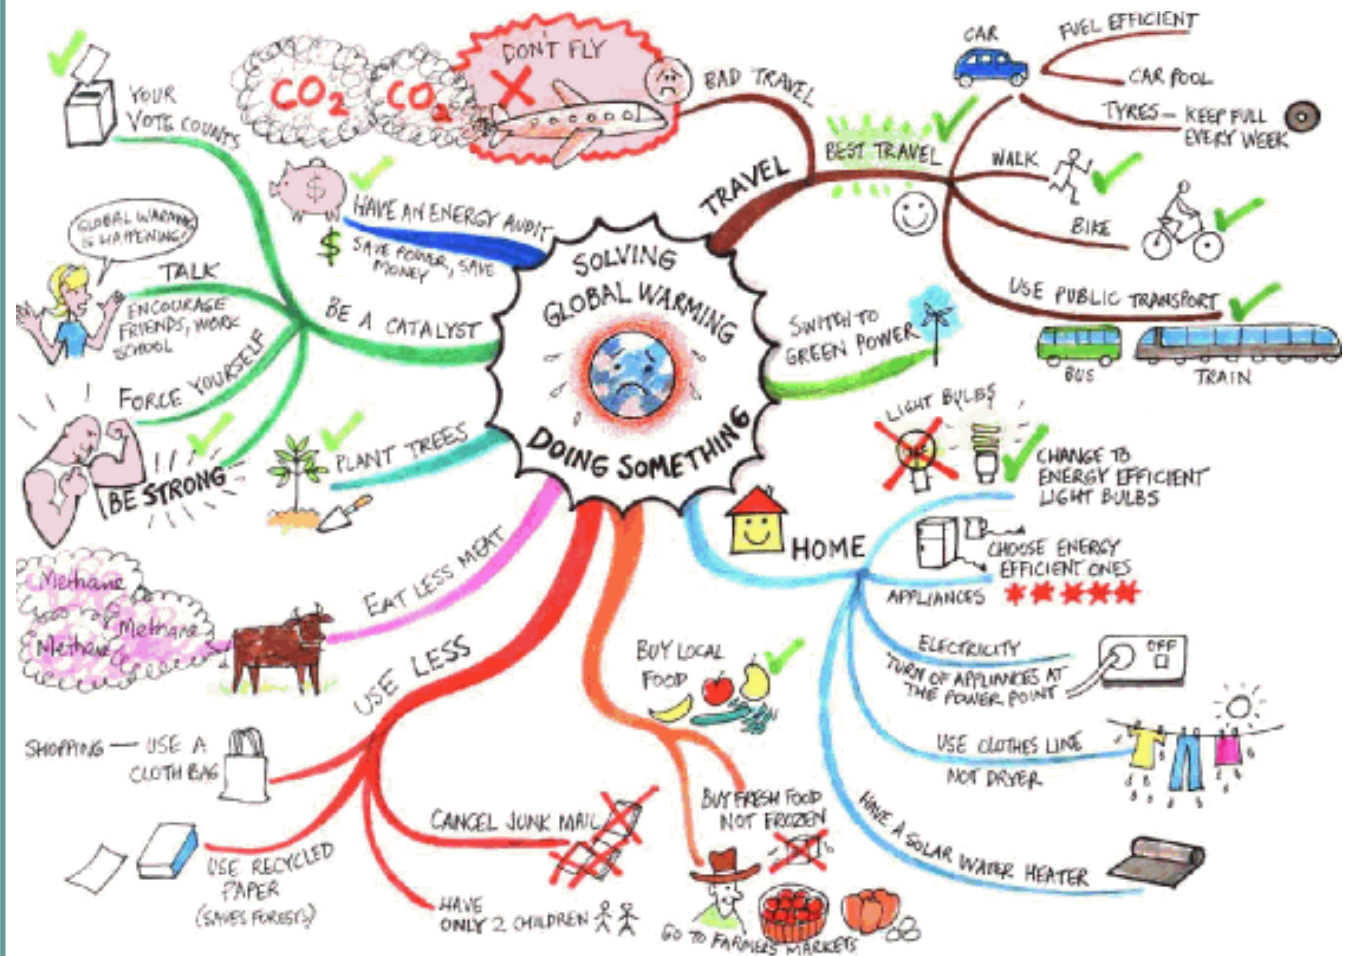 SOLVING
GLOBAL WARMING
DOING SOMETHING
TRAVEL
BAD TRAVEL
DON'T FLY
CO2
CO2
BEST TRAVEL
CAR
FUEL EFFICIENT
CAR POOL
TYRES — KEEP FULL
EVERY WEEK
WALK
BIKE
USE PUBLIC TRANSPORT
BUS
TRAIN
SWITCH TO
GREEN POWER
HOME
LIGHT BULBS
CHANGE TO
ENERGY EFFICIENT
LIGHT BULBS
CHOOSE ENERGY
EFFICIENT ONES
APPLIANCES
ELECTRICITY
TURN OF APPLIANCES AT
THE POWER POINT
OFF
USE CLOTHES LINE
NOT DRYER
HAVE A SOLAR WATER HEATER
BUY LOCAL
FOOD
BUY FRESH FOOD
NOT FROZEN
GO TO FARMERS MARKETS
USE LESS
CANCEL JUNK MAIL
HAVE
ONLY 2 CHILDREN
USE RECYCLED
PAPER
(SAVES FORESTS)
SHOPPING — USE A
CLOTH BAG
EAT LESS MEAT
Methane
Methane
Methane
PLANT TREES
BE A CATALYST
YOUR
VOTE COUNTS
TALK
GLOBAL WARMING
IS HAPPENING!
ENCOURAGE
FRIENDS, WORK
SCHOOL
FORCE YOURSELF
BE STRONG
HAVE AN ENERGY AUDIT
SAVE POWER, SAVE
MONEY
$
$